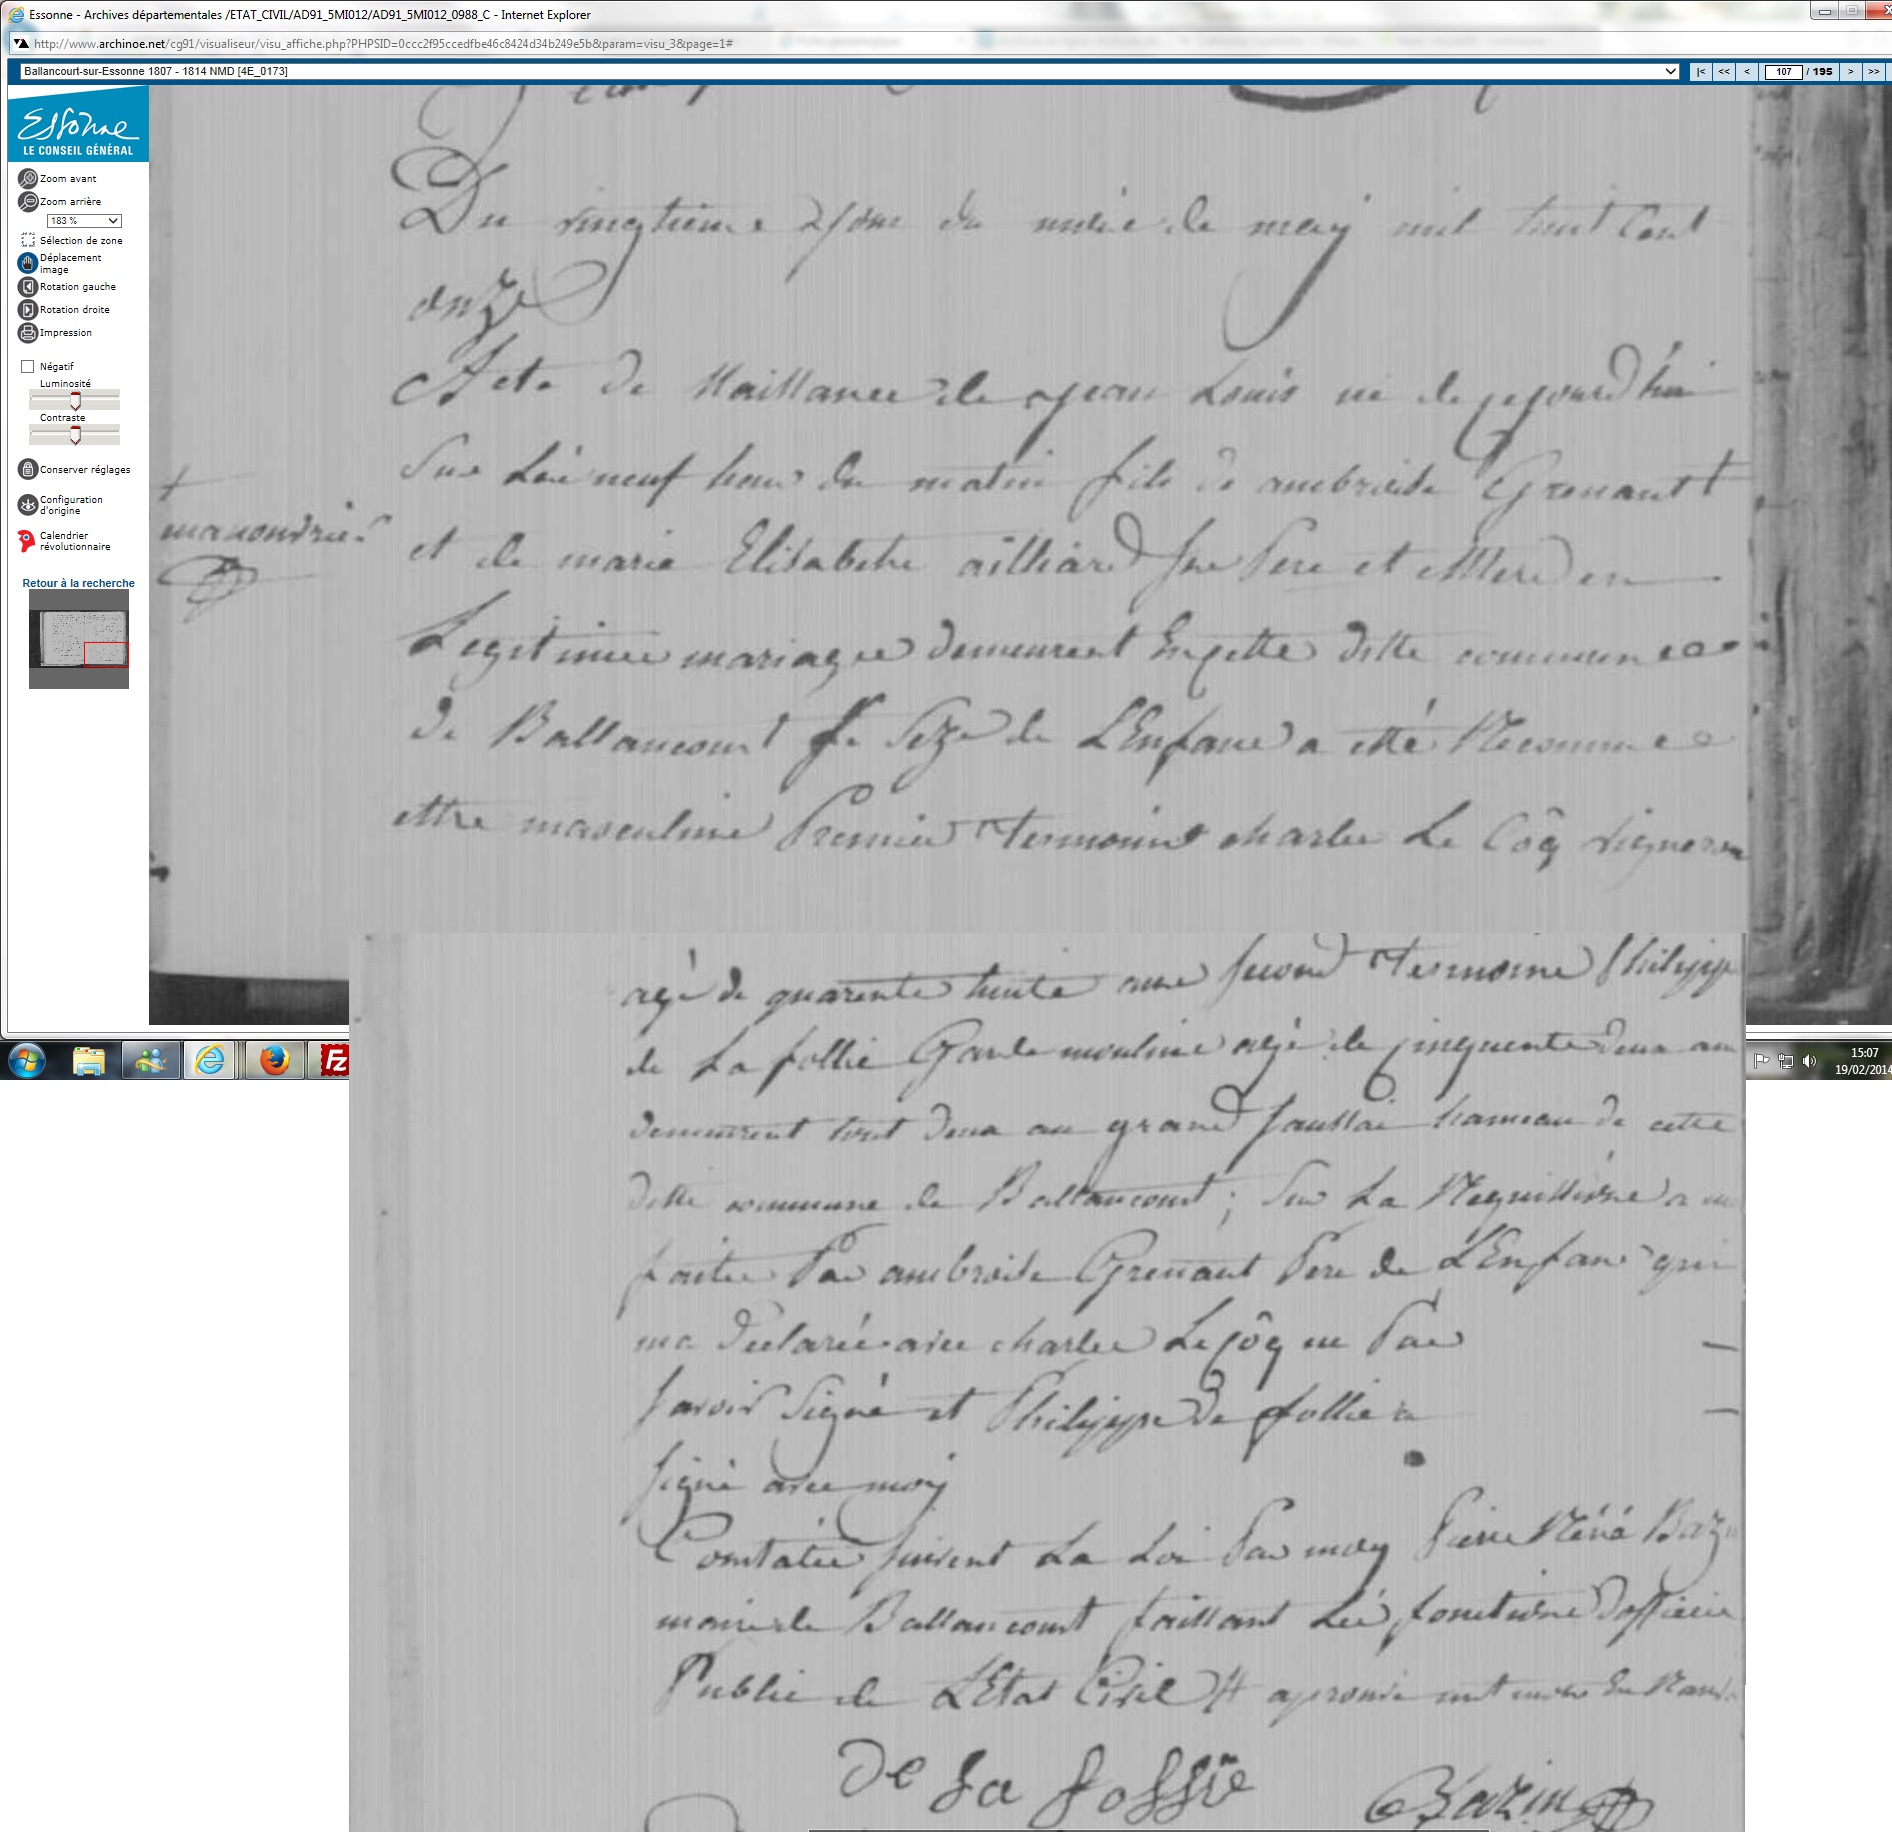 Essonne - Archives départementales /ETAT_CIVIL/AD91_5MI012/AD91_5MI012_0988_C - Internet Explorer
http://www.archinoe.net/cg91/visualiseur/visu_affiche.php?PHPSID=0ccc2f95ccedfbe46c8424d34b249e5b&param=visu_3&page=1#
Ballancourt-sur-Essonne 1807 - 1814 NMD [4E_0173]
|< << < 107 / 195 > >>
Essonne
LE CONSEIL GÉNÉRAL
Zoom avant
Zoom arrière
183 %
Sélection de zone
Déplacement
image
Rotation gauche
Rotation droite
Impression
Négatif
Luminosité
Contraste
Conserver réglages
Configuration
d'origine
Calendrier
révolutionnaire
Retour à la recherche
Du vingtieme Jour du mois de may mil huit Cent
onze
Acte de Naissance de Jean Louis né de cejourd'hui
Sur Les neuf heur du matin fils de ambroise Grenant +
+
manouvrier
et de marie Elisabethe ailliard Ses Pere et Mere en
Legitimee mariagee demeurent En cette ditte commune
de Ballancourt Le Sexe de L'Enfans a etté Reconnue
ettre masculine Premier Termoins charles Le Côq vigneron
agé de quarente huite ans second Termoine Philippe
de La follie Garde mouline agé de cinquente deux ans
demeurent tout deux au grand Saussai hameau de cette
ditte commune de Ballancourt; Sur La Requisitione a
faitte Par ambroise Grenant Pere de L'Enfans qui
ma Declarée avec charles Le Côq ne Pas
savoir Signé et Philippe De follie a
signé avec moy
Constatée suivent La Loi Par moy Pierre Réné Bazin
maire de Ballancourt faissant Les fonctione D'officie
Public de L'Etat Civil # aprouvé
De La follie Bazin
15:07
19/02/2014